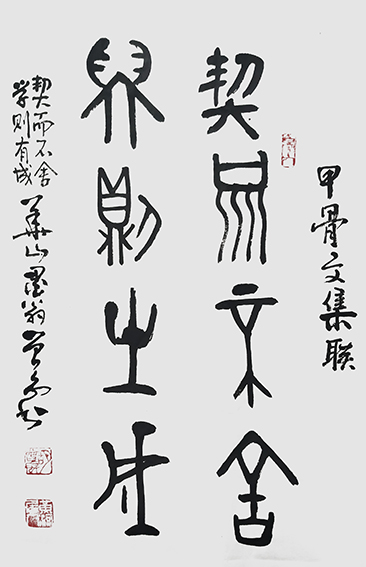 甲骨文集联
契而不舍
學則有成
契而不舍
学则有成
華山墨翁